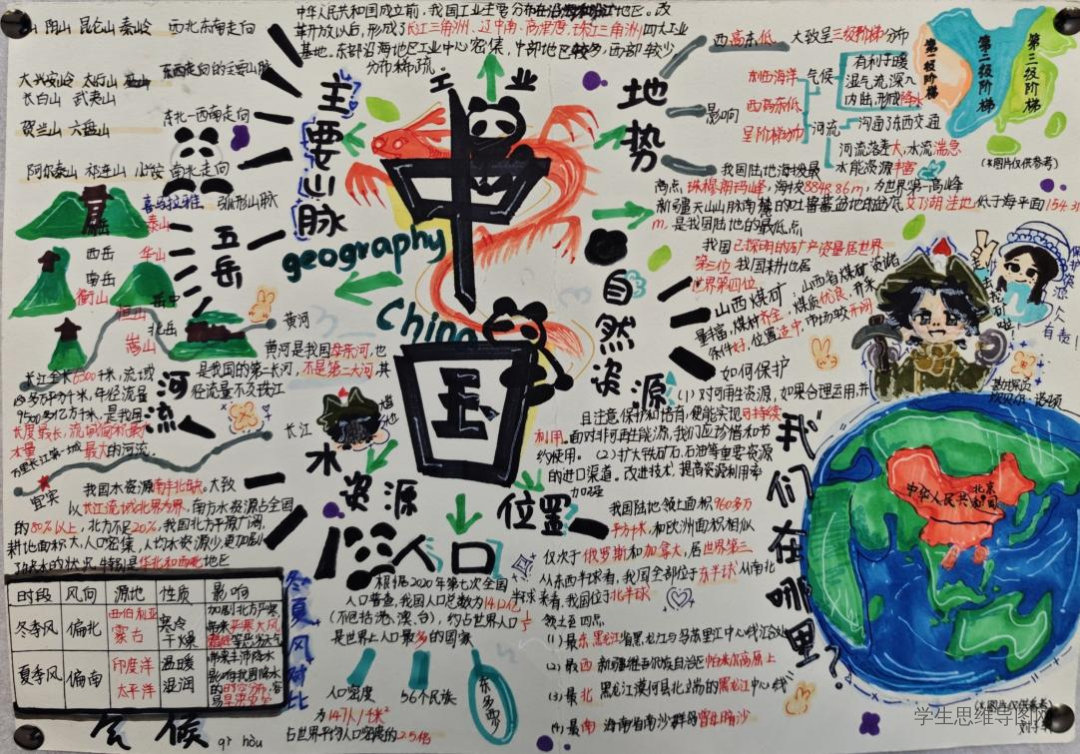 中华人民共和国成立前,我国工业主要分布在沿海和沿江地区。改
革开放以后,形成了长江三角洲、辽中南、京津唐、珠江三角洲四大工业
基地。东部沿海地区工业中心密集,中部地区较多,西部较少
分布稀疏。
工业
山 阴山 昆仑山 秦岭 西北东南走向
大兴安岭 太行山 巫山
长白山 武夷山
东西走向的主要山脉
贺兰山 六盘山
东北—西南走向
阿尔泰山 祁连山 小兴安 南北走向
喜马拉雅 弧形山脉
主要山脉
五岳
泰山
西岳 华山
南岳
衡山
恒山
北岳
嵩山
中国
geography
China
地势
西高东低 大致呈三级阶梯分布
影响
水面海洋
西高东低
呈阶梯状
气候
有利于暖
湿气流深入
内陆,形成降水
河流
沟通了东西交通
河流落差大,水流湍急
水能资源丰富
第一级阶梯
第二级阶梯
第三级阶梯
(本图片仅供参考)
我国陆地海拔最
高点,珠穆朗玛峰,海拔8848.86m,为世界第一高峰
新疆天山山脉南麓的吐鲁番盆地的艾丁湖洼地,低于海平面154.31
m,是我国陆地的最低点
自然资源
我国已探明的矿产资源居世界
第三位,我国耕地居
世界第四位
山西煤矿:山西省煤矿资源
量丰富,煤种齐全,煤质优良,开采
条件好,位置适中,市场较开阔
如何保护
(1)对可再生资源,如果合理运用,并
且注意保护和培育,便能实现可持续
利用。面对非可再生能源,我们应珍惜和节
约使用。(2)扩大铁矿石、石油等重要资源
的进口渠道。改进技术,提高资源利用率
去找矿啦!
保护资源人人有责!
黄河
黄河是我国母亲河,也
是我国的第二长河,不是第二大河,其
径流量不及珠江
河流
长江全长6300千米,流域
180多万平方千米,年径流量
9500多亿方千米,是我国
长度最长,流域面积最广
水量最大的河流。
万里长江第一城
宜宾
长江
水资源
我国水资源南丰北缺。大致
以长江流域北界为界,南方水资源占全国
的80%以上,北方不足20%。我国北方平原广阔,
耕地面积大,人口密集,人均水资源少更加剧
华北和西北地区
位置
我国陆地领土面积960多万
平方千米,和欧洲面积相似
仅次于俄罗斯和加拿大,居世界第三
从东西半球看,我国全部位于东半球,从南北
半球来看,我国位于北半球
领土至四点
(1)最东 黑龙江省黑龙江与乌苏里江中心线汇合处
(2)最西 新疆维吾尔族自治区帕米尔高原上
(3)最北 黑龙江漠河县北端的黑龙江中心线
(4)最南 海南省南沙群岛曾母暗沙
我们在哪里?
中华人民共和国
北京
人口
根据2020年第七次全国
人口普查,我国人口总数为14.12亿
(不包括港、澳、台),约占世界人口1/5
是世界上人口最多的国家
人口密度
为147人/千米²
占世界平均人口密度的2.5倍
56个民族
东多西少
冬夏风对比
时段 风向 源地 性质 影响
冬季风 偏北 西伯利亚 蒙古 寒冷 干燥
夏季风 偏南 印度洋 太平洋 温暖 湿润
气候
qì hòu
(本图片仅供参考)
学生思维导图网